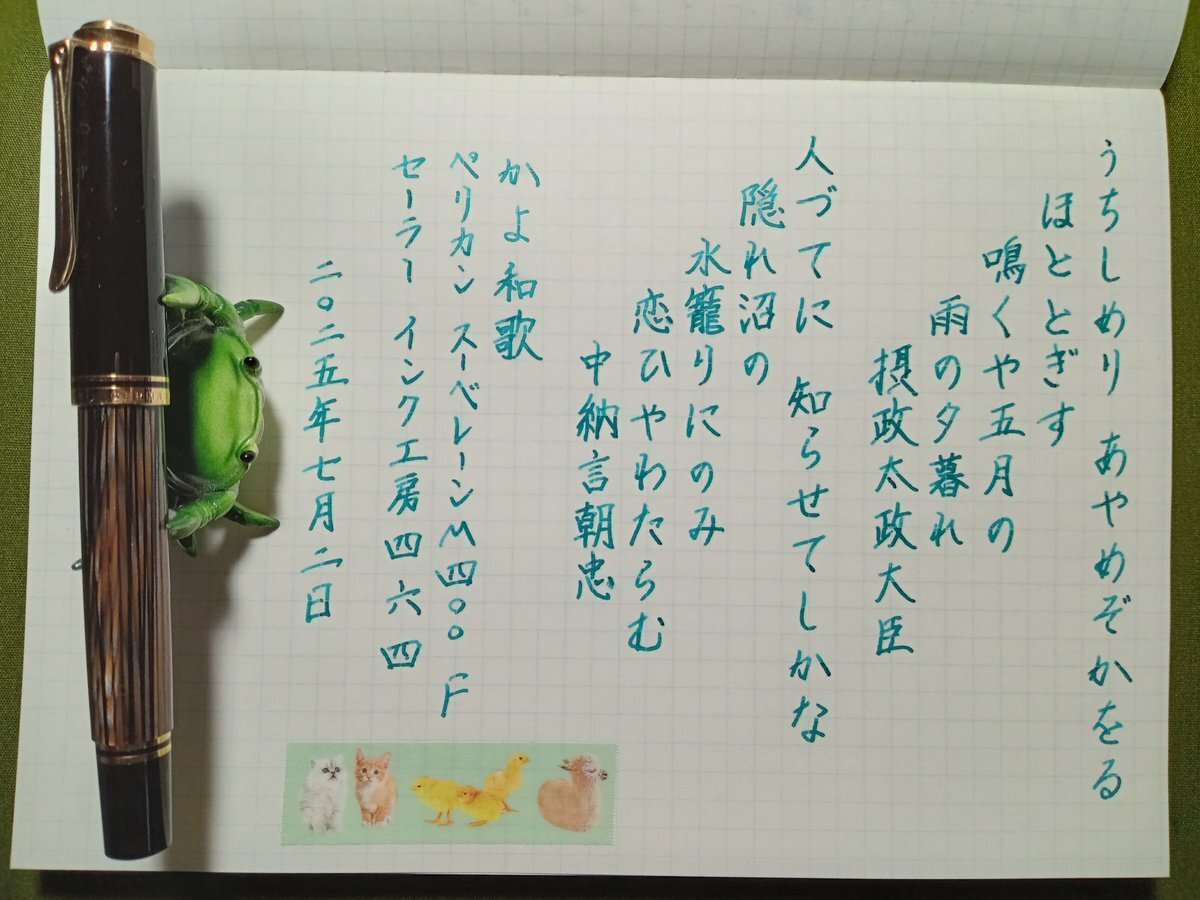 うちしめり あやめぞかをる
ほととぎす
鳴くや五月の
雨の夕暮れ
摂政太政大臣
人づてに 知らせてしかな
隠れ沼の
水籠りにのみ
恋ひやわたらむ
中納言朝忠
かよ和歌
ペリカン スーベレーンM四〇〇 F
セーラー インク工房四六四
二〇二五年七月二日